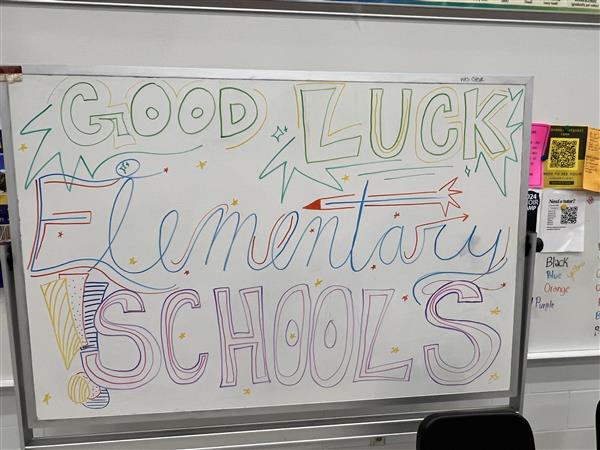 WHS CHOIR
GOOD LUCK
Elementary
SCHOOLS
Need a tutor?
Black
Blue
Orange
Purple